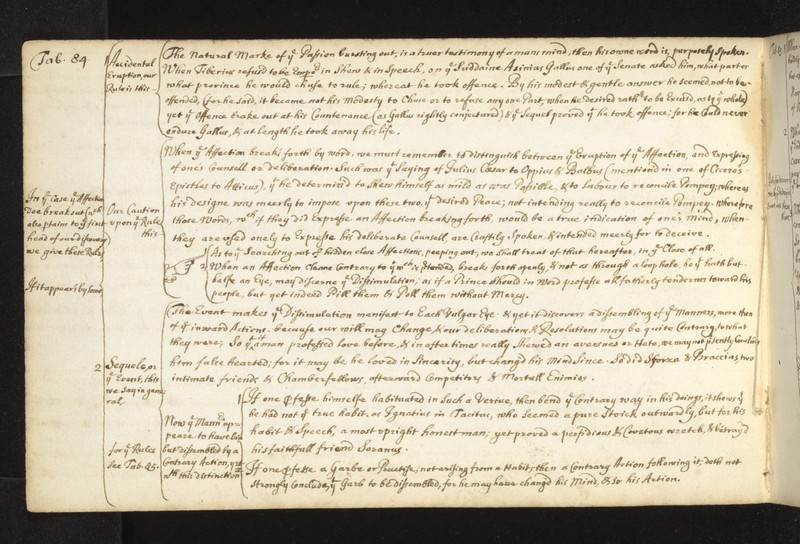 Tab. 84
In yᵉ case yᵉ Affection
Doe breake out (wᶜʰ
also ptaine to yᵉ first
head of our discovery
we give these Rules
If it appear's by some
1 Accidental
Eruption, our
Rule is this
The Natural Marke of yᵉ Passion bursting out, is a truer testimony of a mans mind, then his owne word is, purposely Spoken.
When Tiberius refus'd to be Empʳ in Shew & in Speech, on yᵉ Suddaine Asinius Gallus one of yᵉ Senate asked him, what part or
what province he would chuse to rule; whereat he took offence. By his modest & gentle answer he seemed not to be
offended, (for he said, it became not his Modesty to Chuse or to refuse any one Part, when he desired rathʳ to be Excus'd, as to yᵉ whole)
yet yᵉ offence brake out at his Countenance (as Gallus rightly conjectured) & yᵉ Sequel proved yᵗ he took offence; for he Could never
endure Gallus, & at length he took away his life.
Our Caution
upon yᵉ Rule
this
When yᵉ Affection breaks forth by word, we must remember to distinguish between yᵉ Eruption of yᵉ Affection, and Expressing
of one's Counsell or deliberation. Such was yᵉ Saying of Julius Cæsar to Oppius & Balbus (mentiond in one of Cicero's
Epistles to Atticus), yᵗ he determin'd to Shew himself as mild as was Possible, & to Labour to reconcile Pompey; whereas
his designe was meerly to impose upon these two, yᵗ desired Peace; not intending really to reconcile Pompey. Wherefore
those Words, wᶜʰ if they did Expresse an Affection breaking forth, would be a true indication of one's Mind, when
they are used onely to Expresse his deliberate Counsell, are Craftily Spoken, & intended meerly for to deceive.
As to yᵉ Searching out of hidden close Affections, peeping out, we shall treat of that hereafter, in yᵉ Close of all.
2 When an Affection Cleane Contrary to yᵗ wᶜʰ is ptended, breaks forth openly, & not as through a loop hole, he yᵗ hath but
halfe an Eye, may discerne yᵉ Dissimulation; as if a Prince should in Word professe all fatherly tendernes toward his
people, but yet indeed Pill them & Poll them without Mercy.
2 Sequele, or
yᵉ Event, this
we say in gene
ral
The Event makes yᵉ Dissimulation manifest to Each Vulgar Eye. & yet it discovers a dissembling of yᵉ Manners, more then
of yᵉ inward Actions. because our will may Change, & our deliberations & Resolutions may be quite Contrary, to what
they were; So yᵗ if a man professed love before, & in after times really Shewed an aversenes or Hate, we may not psently Conclude
him false hearted; for it may be he loved in Sincerity, but chang'd his Mind Since. So did Sforza & Braccius, two
intimate friends & Chamberfellows, afterward Competitors & Mortall Enimies.
for yᵉ Rules
See Tab. 85.
Now yᵉ Mannʳˢ ap=
peare to have bin
but dissembled by a
Contrary Action, yet
wᵗʰ this distinction
1 If one pfesse himselfe habituated in Such a Vertue, then bend yᵉ Contrary way in his doings, it shows yᵗ
he had not yᵉ true habit. as Ignatius in Tacitus, who seemed a pure Stoick outwardly, both for his
habit & Speech, a most upright honest man; yet proved a perfidious & Covetous wretch, & betray'd
his faithfull friend Soranus.
2 If one pfesse a Garbe or Practise, not arising from a Habit; then a Contrary Action following it, doth not
strongly Conclude, yᵉ Garb to be dissembled, for he may have chang'd his Mind, & so his Action.